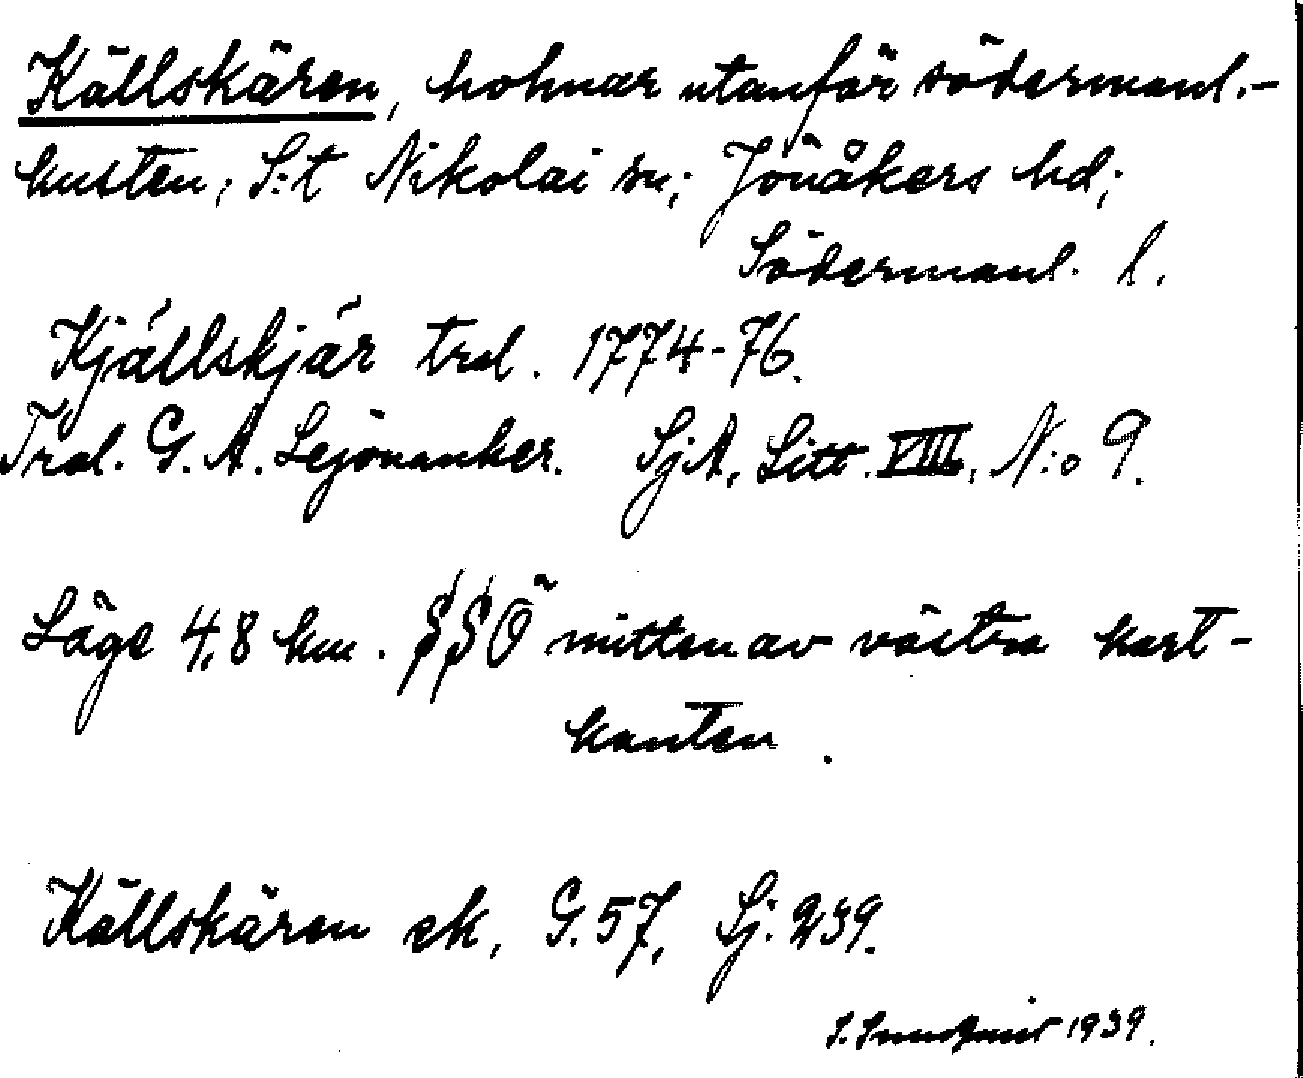 Källskären, holmar utanför södermanl.-
kusten; S:t Nikolai sn; Jönåkers hd;
Södermanl. l.
Kjällskjär trol. 1774-76.
Trol. G. A. Lejonanker. SjA, Litt. VIII, N:o 9.
Läge 4,8 km. SSÖ mitten av västra kart-
kanten.
Källskären ek, G. 57, Sj. 239.
S. Sundqvist 1939.